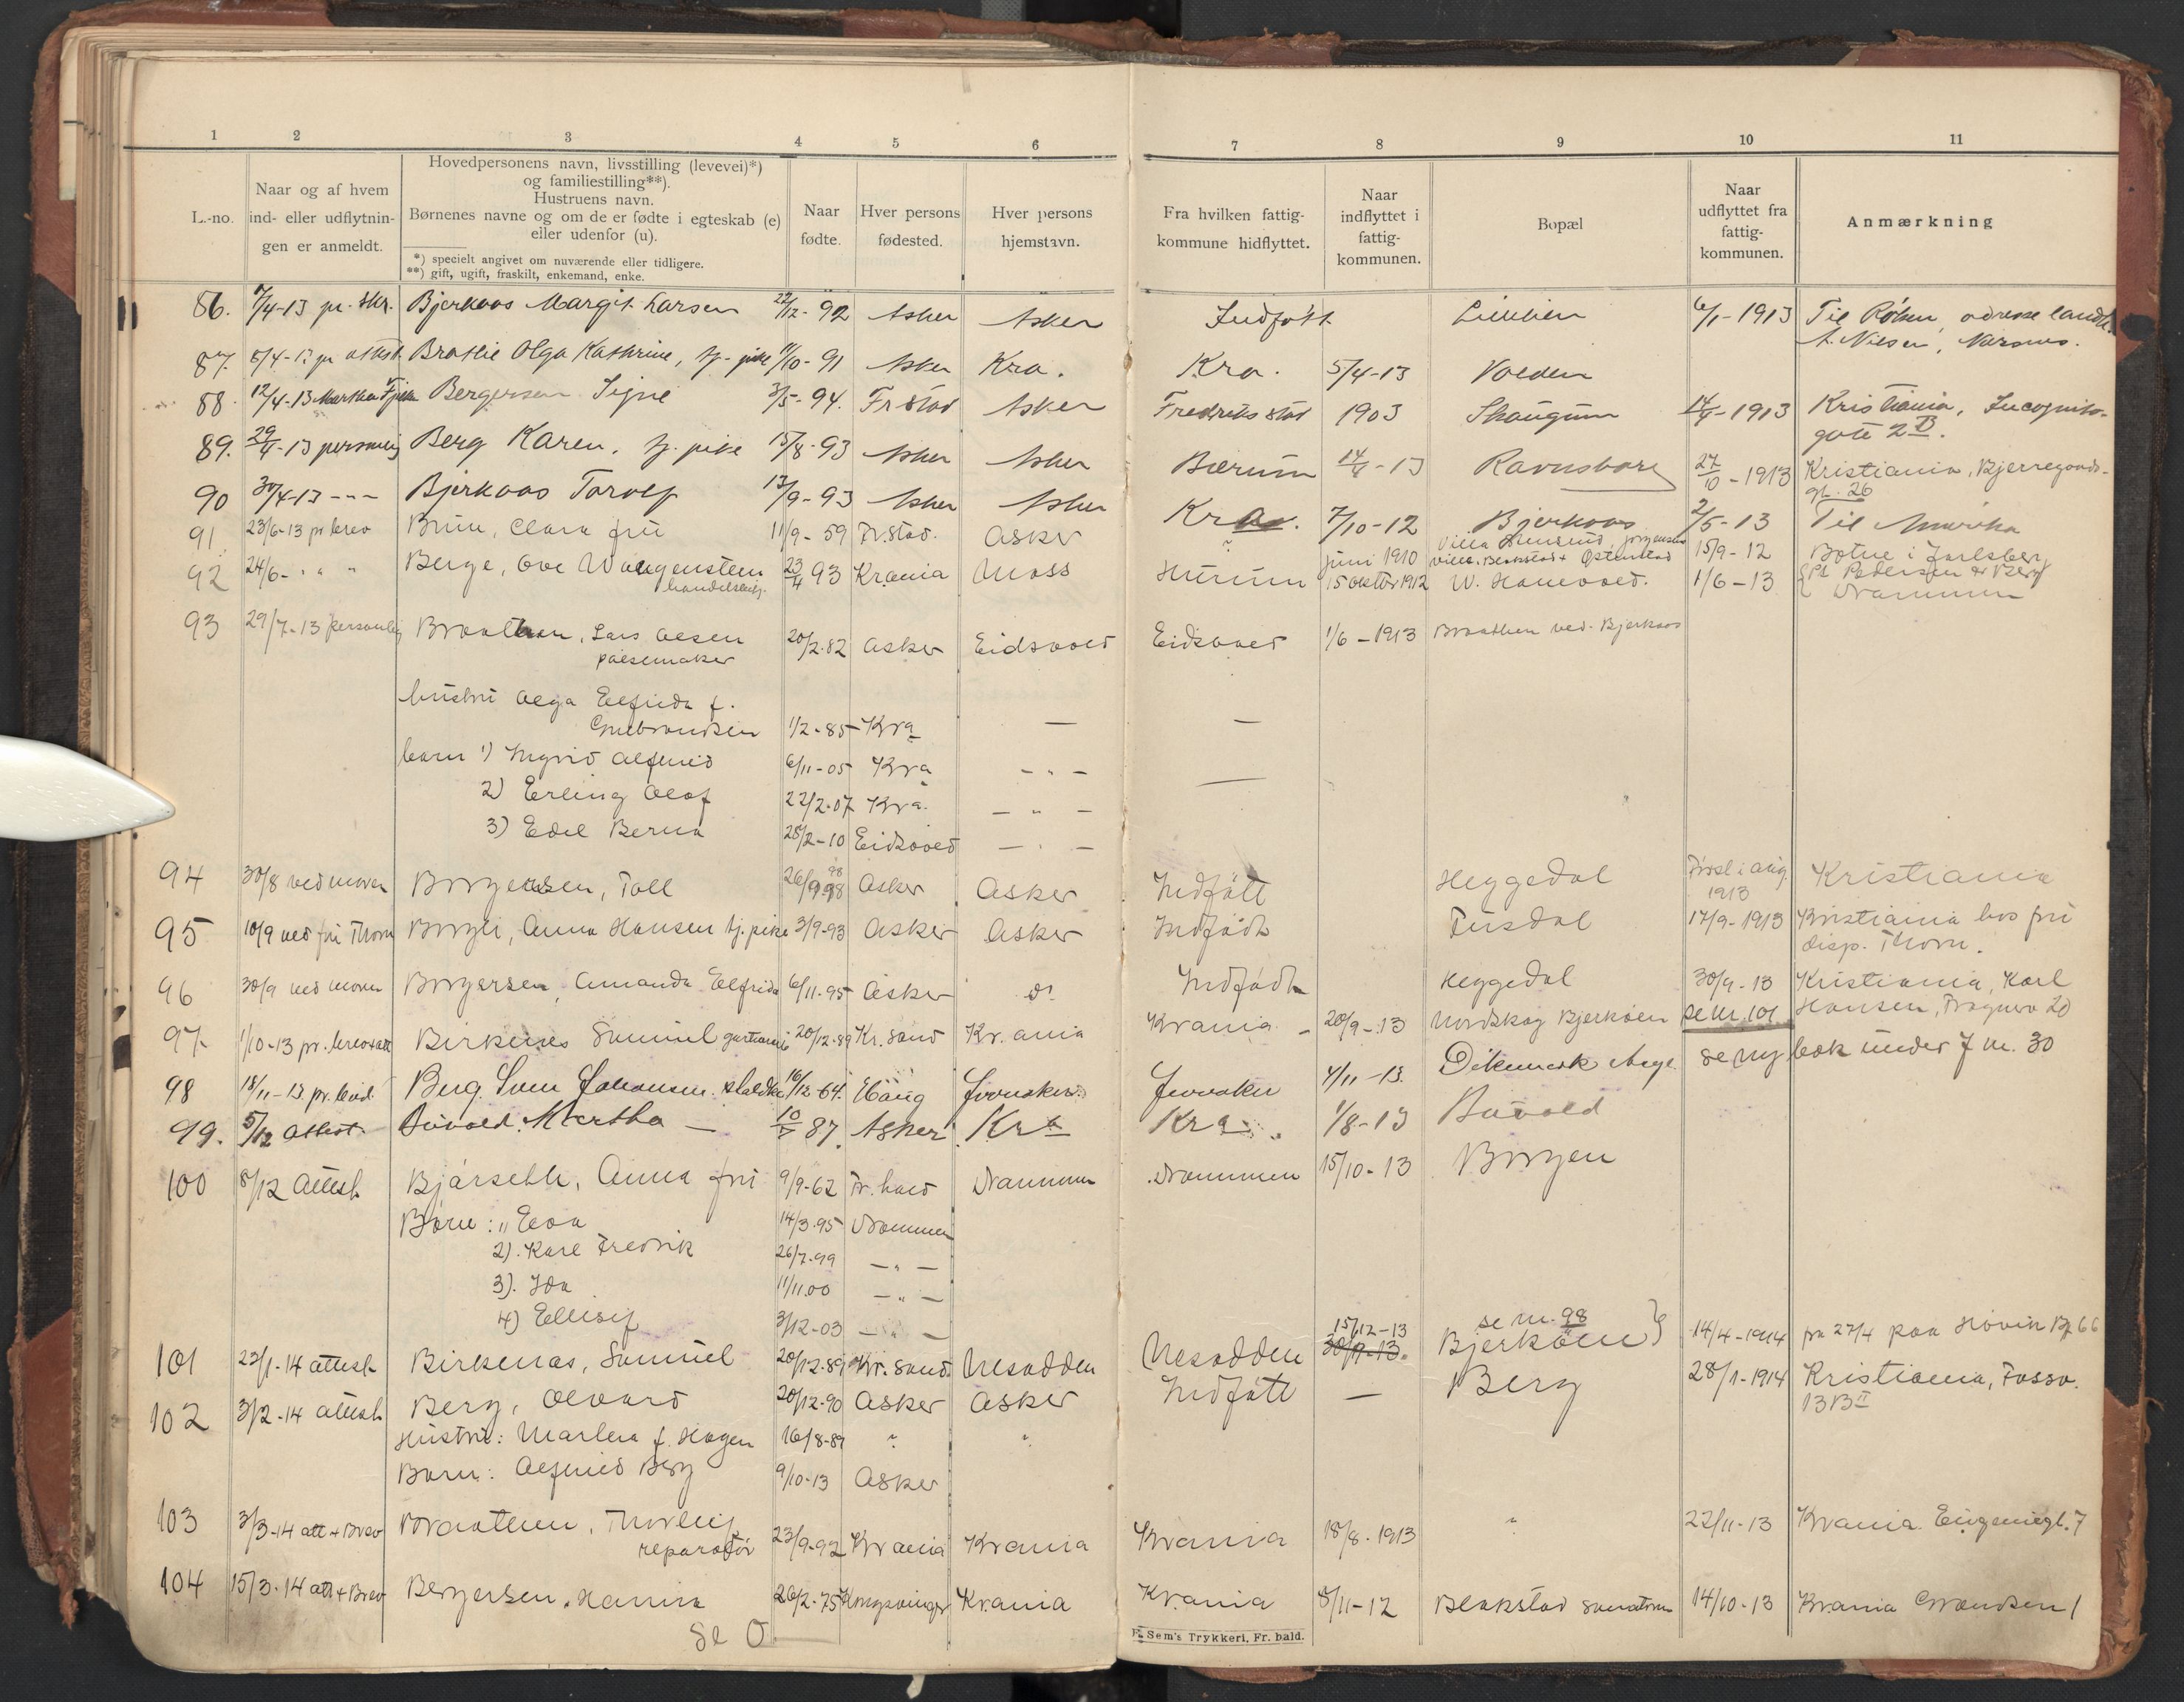 1 2 3 4 5 6 7 8 9 10 11
L.-no.
Naar og af hvem
ind- eller udflytnin-
gen er anmeldt.
Hovedpersonens navn, livsstilling (levevei)*)
og familiestilling**).
Hustruens navn.
Børnenes navne og om de er fødte i egteskab (e)
eller udenfor (u).
*) specielt angivet om nuværende eller tidligere.
**) gift, ugift, fraskilt, enkemand, enke.
Naar
fødte.
Hver persons
fødested.
Hver persons
hjemstavn.
Fra hvilken fattig-
kommune hidflyttet.
Naar
indflyttet i
fattig-
kommunen.
Bopæl
Naar
udflyttet fra
fattig-
kommunen.
Anmærkning
86. 7/4-13 pr. skr. Bjerkaas Margit Larsen 22/12-92 Asker Asker Indfött 6/1-1913 Til Røken, adresse landh.
A. Nilsen, Nærsnes.
87. 5/4-13 pr attest. Bratlie Olga Kathrine, tj-pike 11/10-91 Asker Kra. Kra. 5/4-13 Volden
88. 12/4-13 Bergersen Signe 3/5-94. Fr stad Asker Fredriksstad 1903 Skaugum 14/4-1913 Kristiania, Incognito-
gate 2 B.
89. 29/4-13 personlig Berg Karen, tj. pike 15/8-93 Asker Asker Bærum 14/4-13 Ravnsborg 27/10-1913 Kristiania, Bjerregaards-
gt. 26
90 30/4-13 --- Bjerkaas Torolf 13/9-93 Asker Asker Kra. 7/10-12 Bjerkaas 2/5-13 Til Amerika
91 23/6-13 pr brev Bruu, Clara fru 11/9-59 Fr.stad. Asker juni 1910 15/9-12 Botne i Jarlsberg
92 24/6- " " " Berge, Ove Wangensteen 23/4 93 Krania Moss Hurum 15 oktbr 1912 1/6-13 Pt Pedersen & Berg
handelsbetj. Drammen
93 29/7-13 personlig Braathen, Lars Olsen 20/2.82 Asker Eidsvold Eidsvold 1/6-1913 Braathen ved Bjerkaas
pølsemaker
hustru Olga Elfrida f.
Gulbrandsen 1/2-85 Kra — —
barn 1) Ingrid Alfrid 6/11-05 Kra - " -
2) Erling Olaf 22/2-07 Kra. - " -
3) Edel Berna 28/2-10 Eidsvold - " -
94 30/8 ved moren Borgersen, Toll 26/9 98 Asker Asker Indfött Heggedal 1913 Kristiania
95 10/9 ved fru Thorn Borgli, Anna Hansen tj.pike 3/9-93 Asker Asker Indfödt Tusdal 17/9-1913 Kristiania hos fru
disp. Thorn.
96 30/9 ved moren Borgersen, Amanda Elfrida 6/11-95 Asker do. Indfödt Heggedal 30/9-13 Kristiania, Karl
Hansen, Fragnerv 20
97. 1/10-13 pr. brev+att Birkenes Samuel 20/12-89 Kr.sand Kr.ania Krania - 20/9-13 Nordskog Bjerkåsen se nr. 101
98 18/11-13. pr. bud. Berg Sven Johansen. 16/12-64. Haug Jevnaker Jevnaker 4/11-13. Dikemark Asyl se ny bok under J nr. 30
99. 5/12 Attest. Buvold. Martha — 10/7 87. Asker Kra Kra 1/8-13 Buvold
100 8/12 Attest. Bjørseth, Anna fru 9/9-62 Fr.hald Drammen Drammen 15/10-13 Borgen
Børn: 1) Eva 14/3.95 Drammen
2). Karl Fredrik 26/7.99 - " -
3). Ida 11/11.00 - " -
4) Ellisif 3/12-03 - " -
se nr. 98
15/12-13
101 22/1-14 attest. Birkenas, Samuel 20/12.89 Kr.sand Nesodden Nesodden 30/9-13. Bjerkåsen 14/4-1914 pr 27/4 paa Hovin Bg 66
102 3/2-14 attest. Berg, Olvard 20/12-90 Asker Asker Indfött — Berg 28/1-1914 Kristiania, Fossv.
13 B II
Hustru: Marlera f. Hagen 16/8-89 " "
Barn: Alfrid Berg 9/10-13 Asker
103 3/3-14 att + Brev Braathen, Thorleif 23/9-92 Krania Krania Krania 18/8-1913 " 22/11-13 Krania Eugeniegt. 7
reparatør
104 15/3-14 att + Brev Bergersen, Hanna 26/2-75 Kongsvinger Krania Krania 8/11-12 Blakstad sanatorium 14/10-13 Krania
Se O.
F. Sem's Trykkeri, Fr. hald.